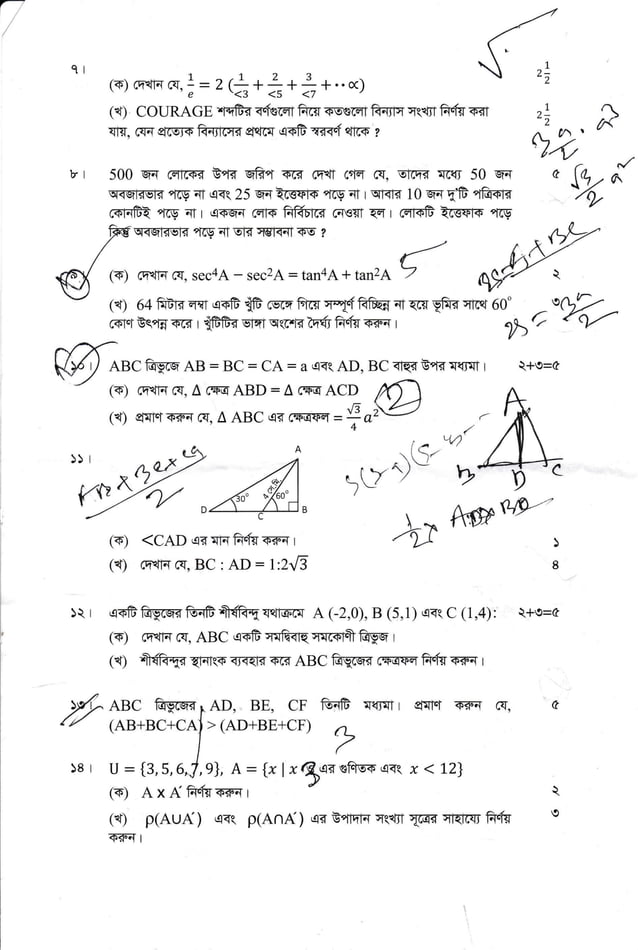 ৭।
(ক) দেখান যে, 1/e = 2 (1/<3 + 2/<5 + 3/<7 + ··∝)
2 1/2
(খ) COURAGE শব্দটির বর্ণগুলো নিয়ে কতগুলো বিন্যাস সংখ্যা নির্ণয় করা
যায়, যেন প্রত্যেক বিন্যাসের প্রথমে একটি স্বরবর্ণ থাকে ?
2 1/2
৮। 500 জন লোকের উপর জরিপ করে দেখা গেল যে, তাদের মধ্যে 50 জন ৫
অবজারভার পড়ে না এবং 25 জন ইত্তেফাক পড়ে না। আবার 10 জন দু'টি পত্রিকার
কোনটিই পড়ে না। একজন লোক নির্বিচারে নেওয়া হল। লোকটি ইত্তেফাক পড়ে
কিন্তু অবজারভার পড়ে না তার সম্ভাবনা কত ?
√3/2 a²
৯।
(ক) দেখান যে, sec⁴A − sec²A = tan⁴A + tan²A ২
5
(খ) 64 মিটার লম্বা একটি খুঁটি ভেঙ্গে গিয়ে সম্পূর্ণ বিচ্ছিন্ন না হয়ে ভূমির সাথে 60° ৩
কোণ উৎপন্ন করে। খুঁটিটির ভাঙ্গা অংশের দৈর্ঘ্য নির্ণয় করুন।
১০। ABC ত্রিভুজে AB = BC = CA = a এবং AD, BC বাহুর উপর মধ্যমা। ২+৩=৫
(ক) দেখান যে, Δ ক্ষেত্র ABD = Δ ক্ষেত্র ACD
(খ) প্রমাণ করুন যে, Δ ABC এর ক্ষেত্রফল = √3/4 a²
2
A
B D C
১১।
A
D 30° C 60° B
4 সে.মি.
1/2 × AD × BC
(ক) <CAD এর মান নির্ণয় করুন। ১
(খ) দেখান যে, BC : AD = 1:2√3 ৪
১২। একটি ত্রিভুজের তিনটি শীর্ষবিন্দু যথাক্রমে A (-2,0), B (5,1) এবং C (1,4): ২+৩=৫
(ক) দেখান যে, ABC একটি সমদ্বিবাহু সমকোণী ত্রিভুজ।
(খ) শীর্ষবিন্দুর স্থানাংক ব্যবহার করে ABC ত্রিভুজের ক্ষেত্রফল নির্ণয় করুন।
১৩। ABC ত্রিভুজের AD, BE, CF তিনটি মধ্যমা। প্রমাণ করুন যে, ৫
(AB+BC+CA) > (AD+BE+CF)
3
১৪। U = {3, 5, 6, 7, 9}, A = {x | x 3 এর গুণিতক এবং x < 12}
(ক) A x A´ নির্ণয় করুন। ২
(খ) ρ(A∪A´) এবং ρ(A∩A´) এর উপাদান সংখ্যা সূত্রের সাহায্যে নির্ণয় ৩
করুন।